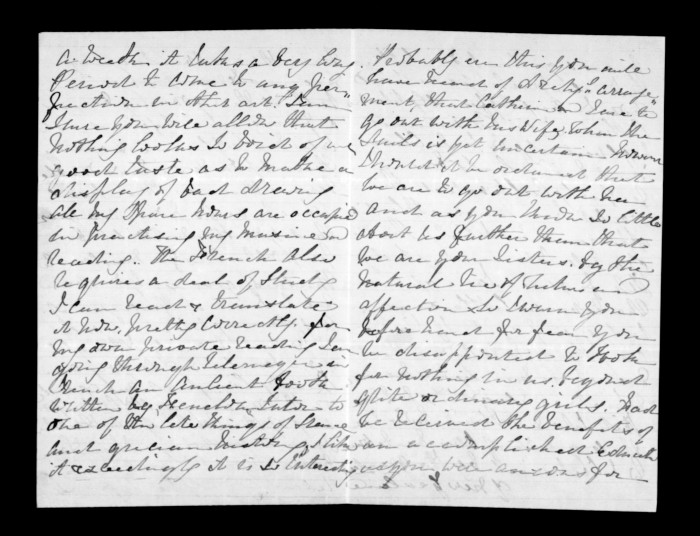 a week it takes a very long
Period to come to any per"
fection in that art. I am
Sure you will allow that
nothing looks so void of
good taste as to make a
display of bad drawing
all my spare hours are occupied
in practising my music
reading. The French also
requires a deal of study
I can read & translate
it now, pretty correctly. for
my own private reading I am
going through Telemaque in
French an ancient book
written by Fenelon Tutor to
one of the late Kings of France
and grecian history I like
it exceedingly it is so interesting
Probably ere this you will
have heard of "arrange"
ment, that is to
go out with his Wife when the
Mails is yet uncertain However
should it be ordained that
we are to go out with her
and as you know so little
about us further than that
we are your sisters. by the
natural tie of nature and
affection to warn you
beforehand for fear you
be disappointed to look
for nothing in us. beyond
quite ordinary girls. Had
we received the benefits of
an accomplished Education
as you were anxious for